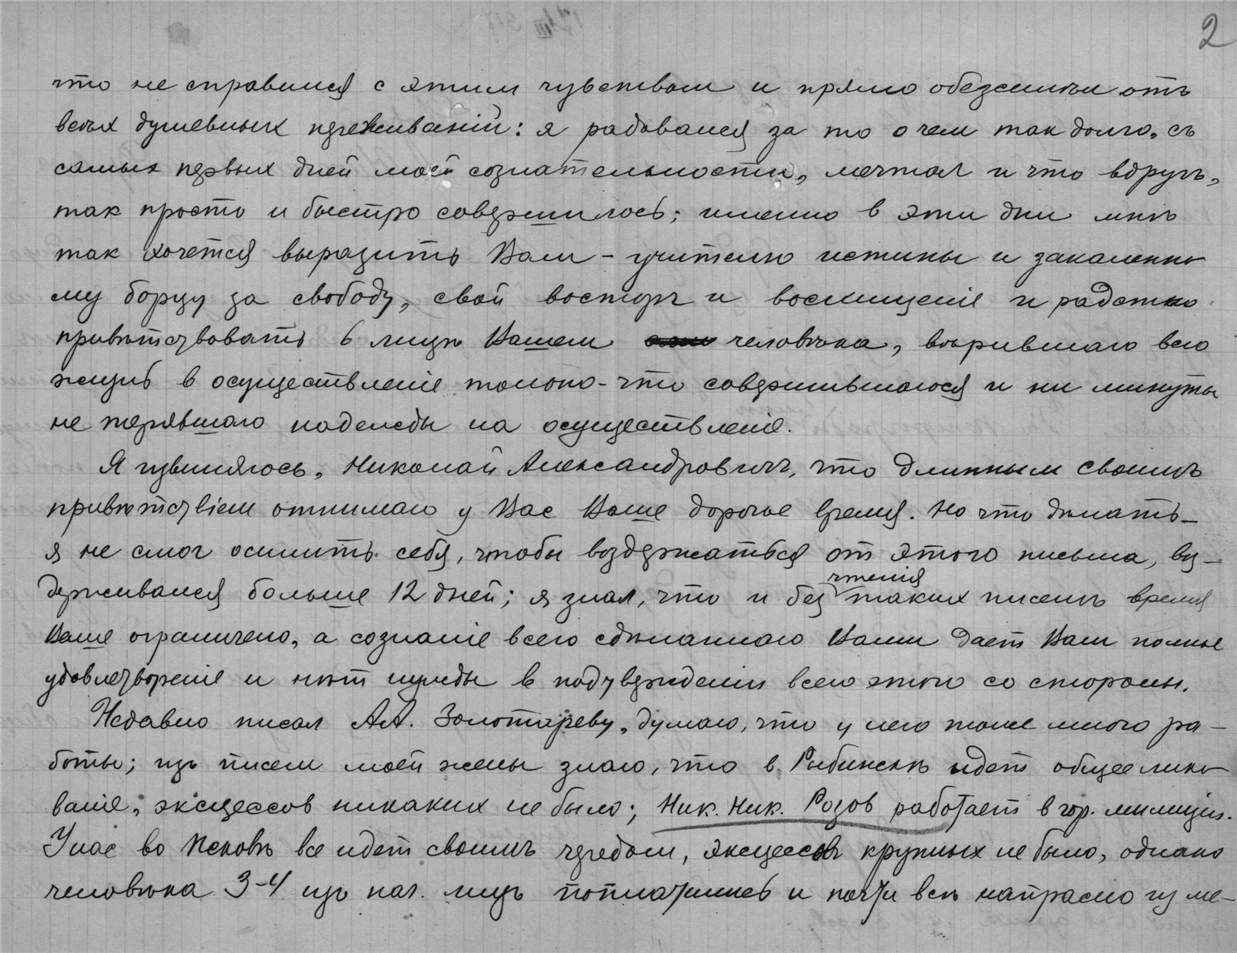 2
что не справился с этим чувством и прямо обезсилел отъ
всѣх душевных переживаній: я радовался за то о чем так долго, съ
самых первых дней моей сознательности, мечтал и что вдругъ,
так просто и быстро совершилось; именно в эти дни мнѣ
так хочется выразить Вам – учителю истины и закаленно
му борцу за свободу, свой восторг и восхищеніе и радостно
привѣтствовать в лицѣ Вашем человѣка, вѣрившаго всю
жизнь в осуществленіе только-что совершившагося и ни минуты
не терявшаго надежды на осуществленіе.
Я извиняюсь, Николай Александрович, что длинным своимъ
привѣтствіем отнимаю у Вас Ваше дорогое время. Но что дѣлать –
я не смог осилить себя, чтобы воздержаться от этого письма, воз-
держивался больше 12 дней; я знал, что и без чтенія таких писемъ время
Ваше ограничено, а сознаніе всего сдѣланнаго Вами дает Вам полное
удовлетвореніе и нѣт нужды в подтвержденіи всего этого со стороны.
Недавно писал А.А. Золотареву, думаю, что у него тоже много ра-
боты; изъ писем моей жены знаю, что в Рыбинскѣ идет общее лико
ваніе, эксцессов никаких не было; Ник. Ник. Розов работает в гор. милиціи.
У нас во Псковѣ все идет своимъ чередом, эксцессов крупных не было, однако
человѣка 3-4 изъ нач. лицъ поплатились и почти всѣ напрасно из ме-